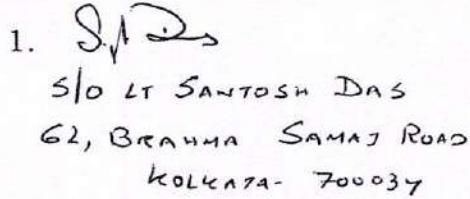 1.
S/O LT SANTOSH DAS
62, BRAHMA SAMAJ ROAD
KOLKATA- 700034